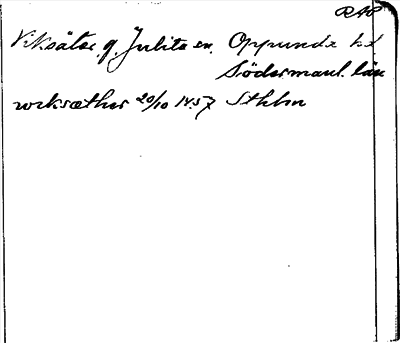 RAP
Viksäter, g. Julita sn. Oppunda hd
Södermanl. län
wiksæther 20/10 1457 Sthlm